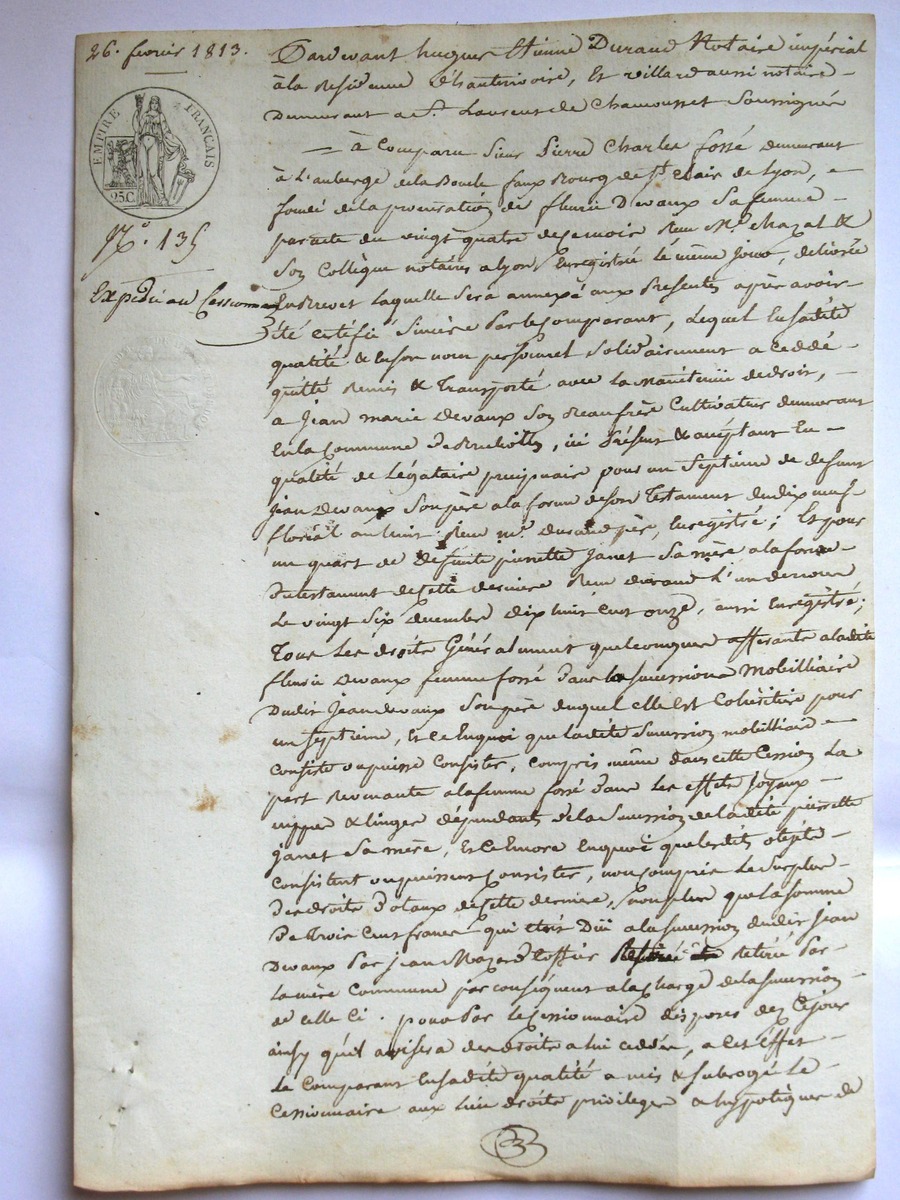 26. fevrier 1813.
EMPIRE FRANÇAIS
25C.
N.º 135
Expédié au Cessionnaire
Pardevant hugues Etienne Durand Notaire impérial
à la Residence d'hauterivoire, Et villard aussi notaire
Demeurant a St. Laurent de Chamousset Soussignés
à Comparu Sieur Pierre Charles fossé demeurant
à l'auberge de la Boucle faux Bourg de St. Clair de Lyon,
fondé de la procuration de fleurie Devaux Sa femme
par acte du vingt quatre de ce mois Reçu Me. chazal &
Son Collègue notaires a Lyon Enregistré le même jour, delivrée
En Brevet laquelle Sera annexé aux Presentes après avoir
été certifié Sincère Par le comparant, Lequel En sadite
qualité & en son nom personnel Solidairement a ceddé
quitté Remis & Transporté avec La Manutenüe de droit,
a Jean marie Devaux Son Beaufrère Cultivateur demeurant
En la Commune de , ici Présent & acceptant En
qualité de Légataire preciputaire pour un Septième de defunt
Jean Devaux Son père a la forme de son Testament du dix neuf
floréal an huit Reçu me. durand père, Enregistré; Et pour
un quart de Defunte pierrette Janet Sa mère a la forme
du testament de cette derniere Reçu durand L'un de nous
Le vingt Six decembre dix huit cent onze, aussi Enregistré;
Tous Les droits Généralement quelconques afferants a ladite
fleurie devaux femme fossé dans la succession Mobilliaire
Dudit Jean devaux Son père duquel elle Est Cohéritiere pour
un Septième, Et ce En quoi que ladite Succession mobilliaire
Consiste ou puisse Consister, compris même dans cette Cession La
part Revenante a la femme fossé dans Les effets Joyaux
nippes & linges dépendants de la Succession de ladite pierrette
Janet Sa mère, Et ce Encore En quoi que lesdits objets
Consistent ou puissent Consister, non compris Le Surplus
Des droits Dotaux de cette derniere, non plus que La Somme
De Trois Cent francs qui etois Düe a la succession dudit Jean
Devaux Par Jean Mazard Retirée Par
La mère Commune par conséquent a la charge de la succession
de celle ci. pour Par le cessionnaire disposer dez Cejour
ainsy qu'il avisera des droits a lui ceddés, a cet Effet
Le Comparant En sadite qualité a mis & subrogé Le
Cessionnaire aux Lieu droits privileges & hypotèques de